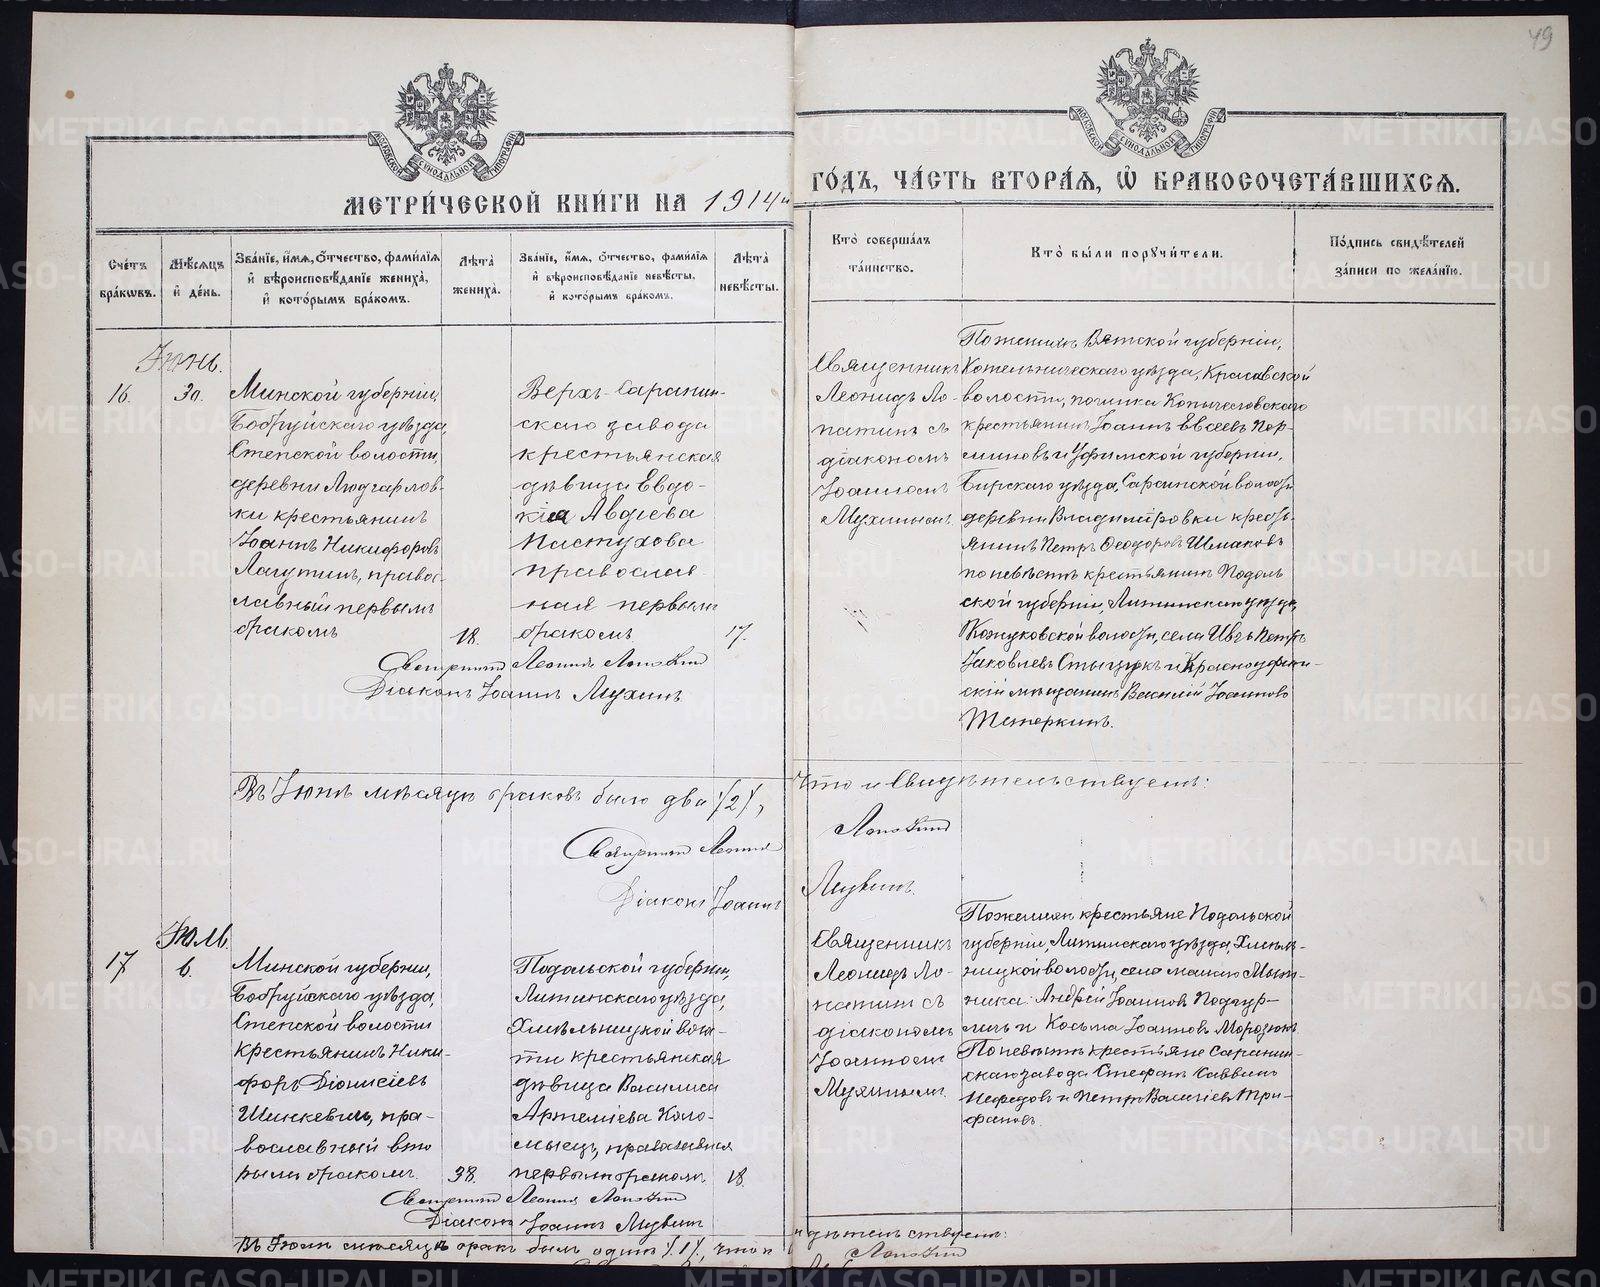 49
МОСКОВСКОЙ СѴНОДАЛЬНОЙ ТИПОГРАФІИ
МОСКОВСКОЙ СѴНОДАЛЬНОЙ ТИПОГРАФІИ
МЕТРИ́ЧЕСКОЙ КНИ́ГИ НА 1914й
ГО́ДЪ, ЧА́СТЬ ВТОРА́Я, Ѡ БРАКОСОЧЕТА́ВШИХСЯ.
Сче́тъ бра́кѡвъ.
Мѣ́сяцъ и҆ де́нь.
Зва́нїе, и҆́мя, ѻ҆́тчество, фами́лїя и҆ вѣроисповѣ́данїе жениха̀, и҆ кото́рымъ бра́комъ.
Лѣ́та жениха̀.
Зва́нїе, и҆́мя, ѻ҆́тчество, фами́лїя и҆ вѣроисповѣ́данїе невѣ́сты, и҆ кото́рымъ бра́комъ.
Лѣ́та невѣ́сты.
Кто̀ соверша́лъ та́инство.
Кто̀ бы́ли поручи́тели.
По́дпись свидѣ́телей за́писи по жела́нїю.
Іюнь.
16.
30.
Минской губерніи,
Бобруйскаго уѣзда,
Степской волости,
деревни
ки крестьянинъ
Іоаннъ Никифоровъ
Лагутинъ, право-
славный первымъ
бракомъ
18.
Верхъ-Саранин-
скаго завода
крестьянская
дѣвица Евдо-
кія Авдіева
Пастухова
православ-
ная первымъ
бракомъ.
17.
Священникъ
Леонидъ Ло-
патинъ съ
діакономъ
Іоанномъ
Мухинымъ.
По женихѣ Вятской губерніи,
Котельническаго уѣзда, Красавской
волости, починка
крестьянинъ Іоаннъ Евсеевъ Пер-
миновъ и Уфимской губерніи,
Бирскаго уѣзда, волости
деревни Владиміровки кресть-
янинъ Петръ Ѳеодоровъ Шмаковъ
по невѣстѣ крестьянинъ Подоль
ской губерніи, Литинскаго уѣзда,
Кожуховской волости, села Ивчъ Петръ
Іаковлевъ и Красноуфим-
скій мѣщанинъ Василій Іоанновъ
Тетеркинъ.
Священникъ Леонидъ Лопатинъ
Діаконъ Іоаннъ Мухинъ.
Въ Іюнѣ мѣсяцѣ браковъ было два /2/,
что и свидѣтельствуемъ:
Священникъ Леонидъ
Лопатинъ
Діаконъ Іоаннъ
Мухинъ.
Іюль.
17
6.
Минской губерніи,
Бобруйскаго уѣзда,
Степской волости
крестьянинъ Ники-
форъ Діонисіевъ
Шинкевичъ, пра-
вославный вто
рымъ бракомъ.
38.
Подольской губерніи,
Литинскаго уѣзда,
Хмѣльницкой волос-
ти крестьянская
дѣвица Василиса
Артеміева Коло-
мыецъ, православная
первымъ бракомъ.
18.
Священникъ
Леонидъ Ло-
патинъ съ
діакономъ
Іоанномъ
Мухинымъ.
По женихѣ крестьяне Подольской
губерніи, Литинскаго уѣзда, Хмѣль-
ницкой волости, села малаго Мыт-
ника Андрей Іоанновъ
и Косьма Іоанновъ Морозюкъ
По невѣстѣ крестьяне Саранин-
скаго завода Стефанъ Саввинъ
Нефедовъ и Петръ Василіевъ Три-
фановъ.
Священникъ Леонидъ Лопатинъ
Діаконъ Іоаннъ Мухинъ
Въ Іюлѣ мѣсяцѣ бракъ былъ одинъ /1/, что и
свидѣтельствуемъ:
Лопатинъ
METRIKI.GASO-URAL.RU